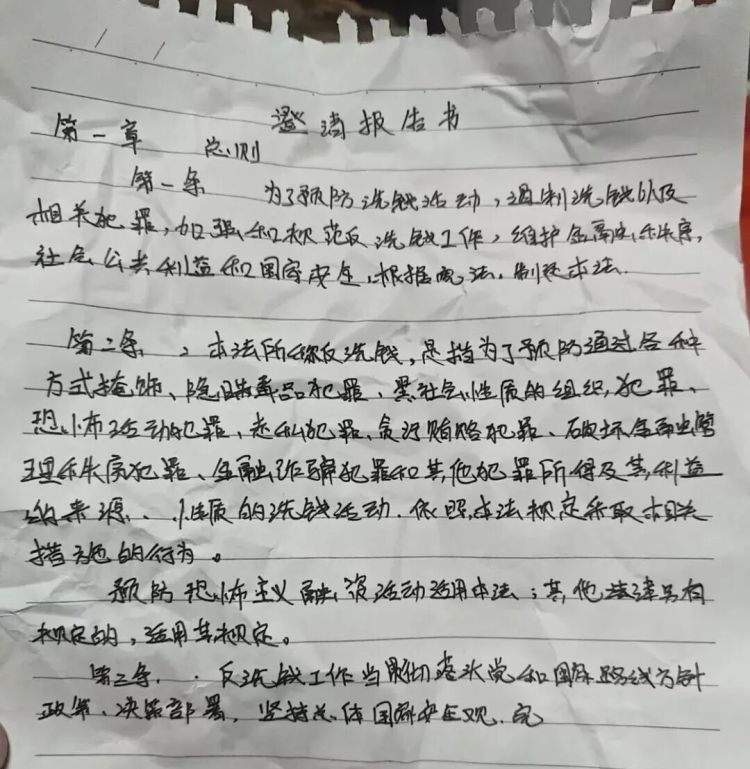 邀请报告书
第一章 总则
第一条 为了预防洗钱活动,遏制洗钱以及
相关犯罪,加强和规范反洗钱工作,维护金融秩序,
社会公共利益和国家安全,根据宪法,制定本法.
第二条、本法所称反洗钱,是指为了预防通过各种
方式掩饰、隐瞒毒品犯罪、黑社会性质的组织犯罪、
恐怖活动犯罪、走私犯罪、贪污贿赂犯罪、破坏金融管
理秩序犯罪、金融诈骗犯罪和其他犯罪所得及其利益
的来源、性质的洗钱活动.依照本法规定采取相关
措施的行为。
预防恐怖主义融资活动适用本法;其他法律另有
规定的,适用其规定。
第三条.反洗钱工作当贯彻落水党和国家路线方针
政策、决策部署,坚持总体国家安全观、完